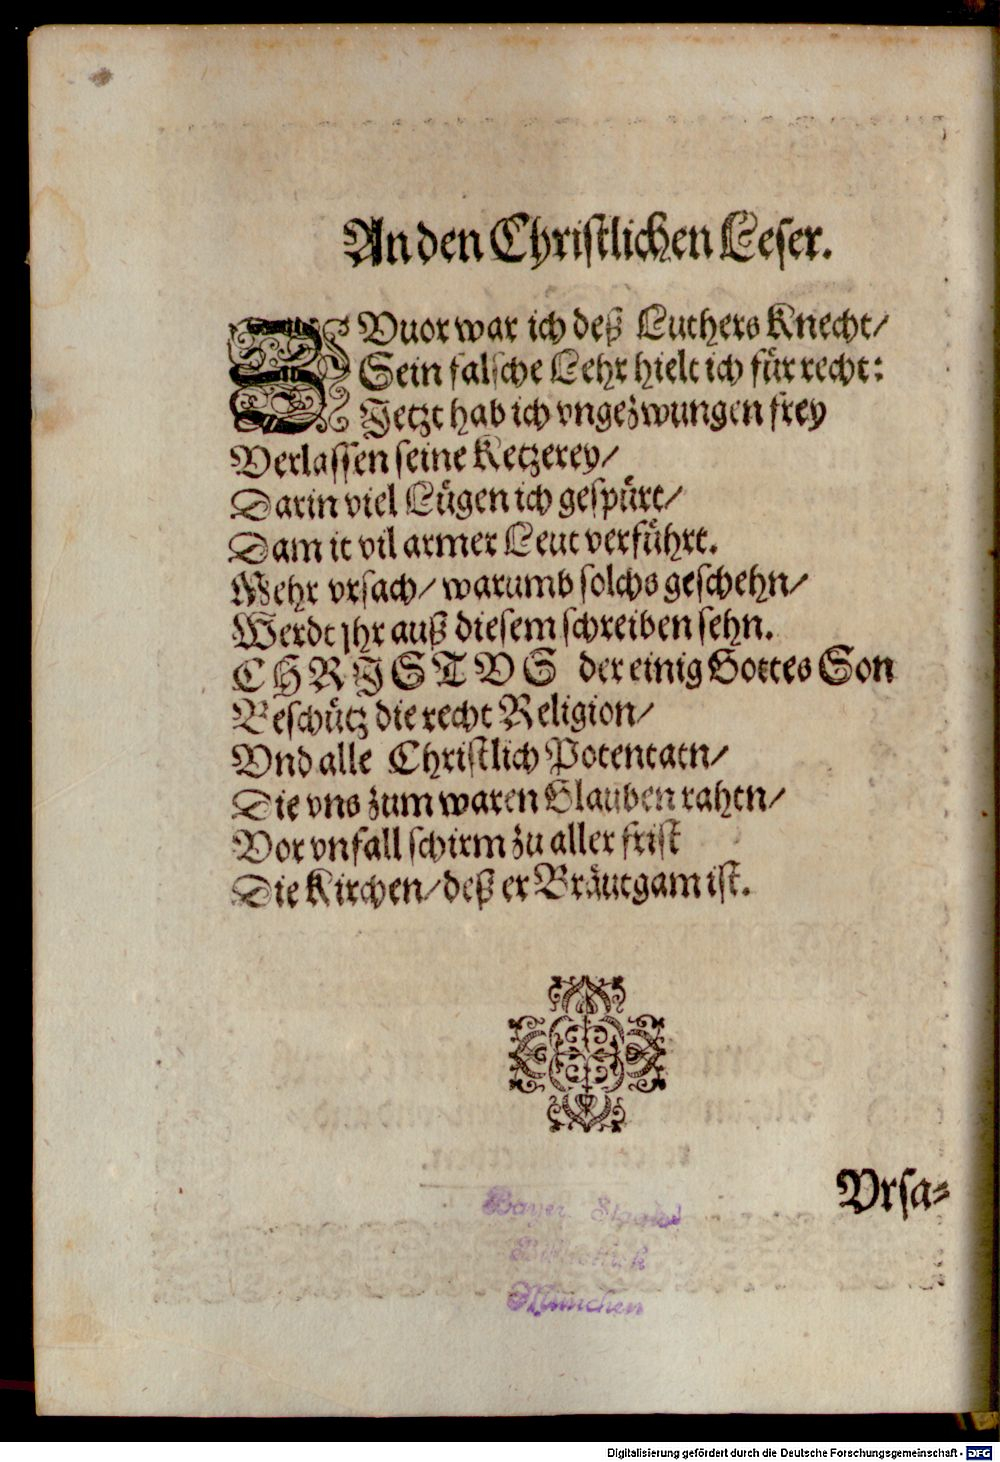 An den Christlichen Leser.
ZVuor war ich deß Luthers Knecht/
Sein falsche Lehr hielt ich für recht:
Jetzt hab ich vngezwungen frey
Verlassen seine Ketzerey/
Darin viel Lügen ich gespürt/
Dam it vil armer Leut verführt.
Mehr vrsach/ warumb solchs geschehn/
Werdt jhr auß diesem schreiben sehn.
CHRISTVS der einig Gottes Son
Beschütz die recht Religion/
Vnd alle Christlich Potentatn/
Die vns zum waren Glauben rahtn/
Vor vnfall schirm zu aller frist
Die Kirchen/ deß er Bräutgam ist.
Vrsa-
Bayer. Staats-
Bibliothek
München
Digitalisierung gefördert durch die Deutsche Forschungsgemeinschaft - DFG